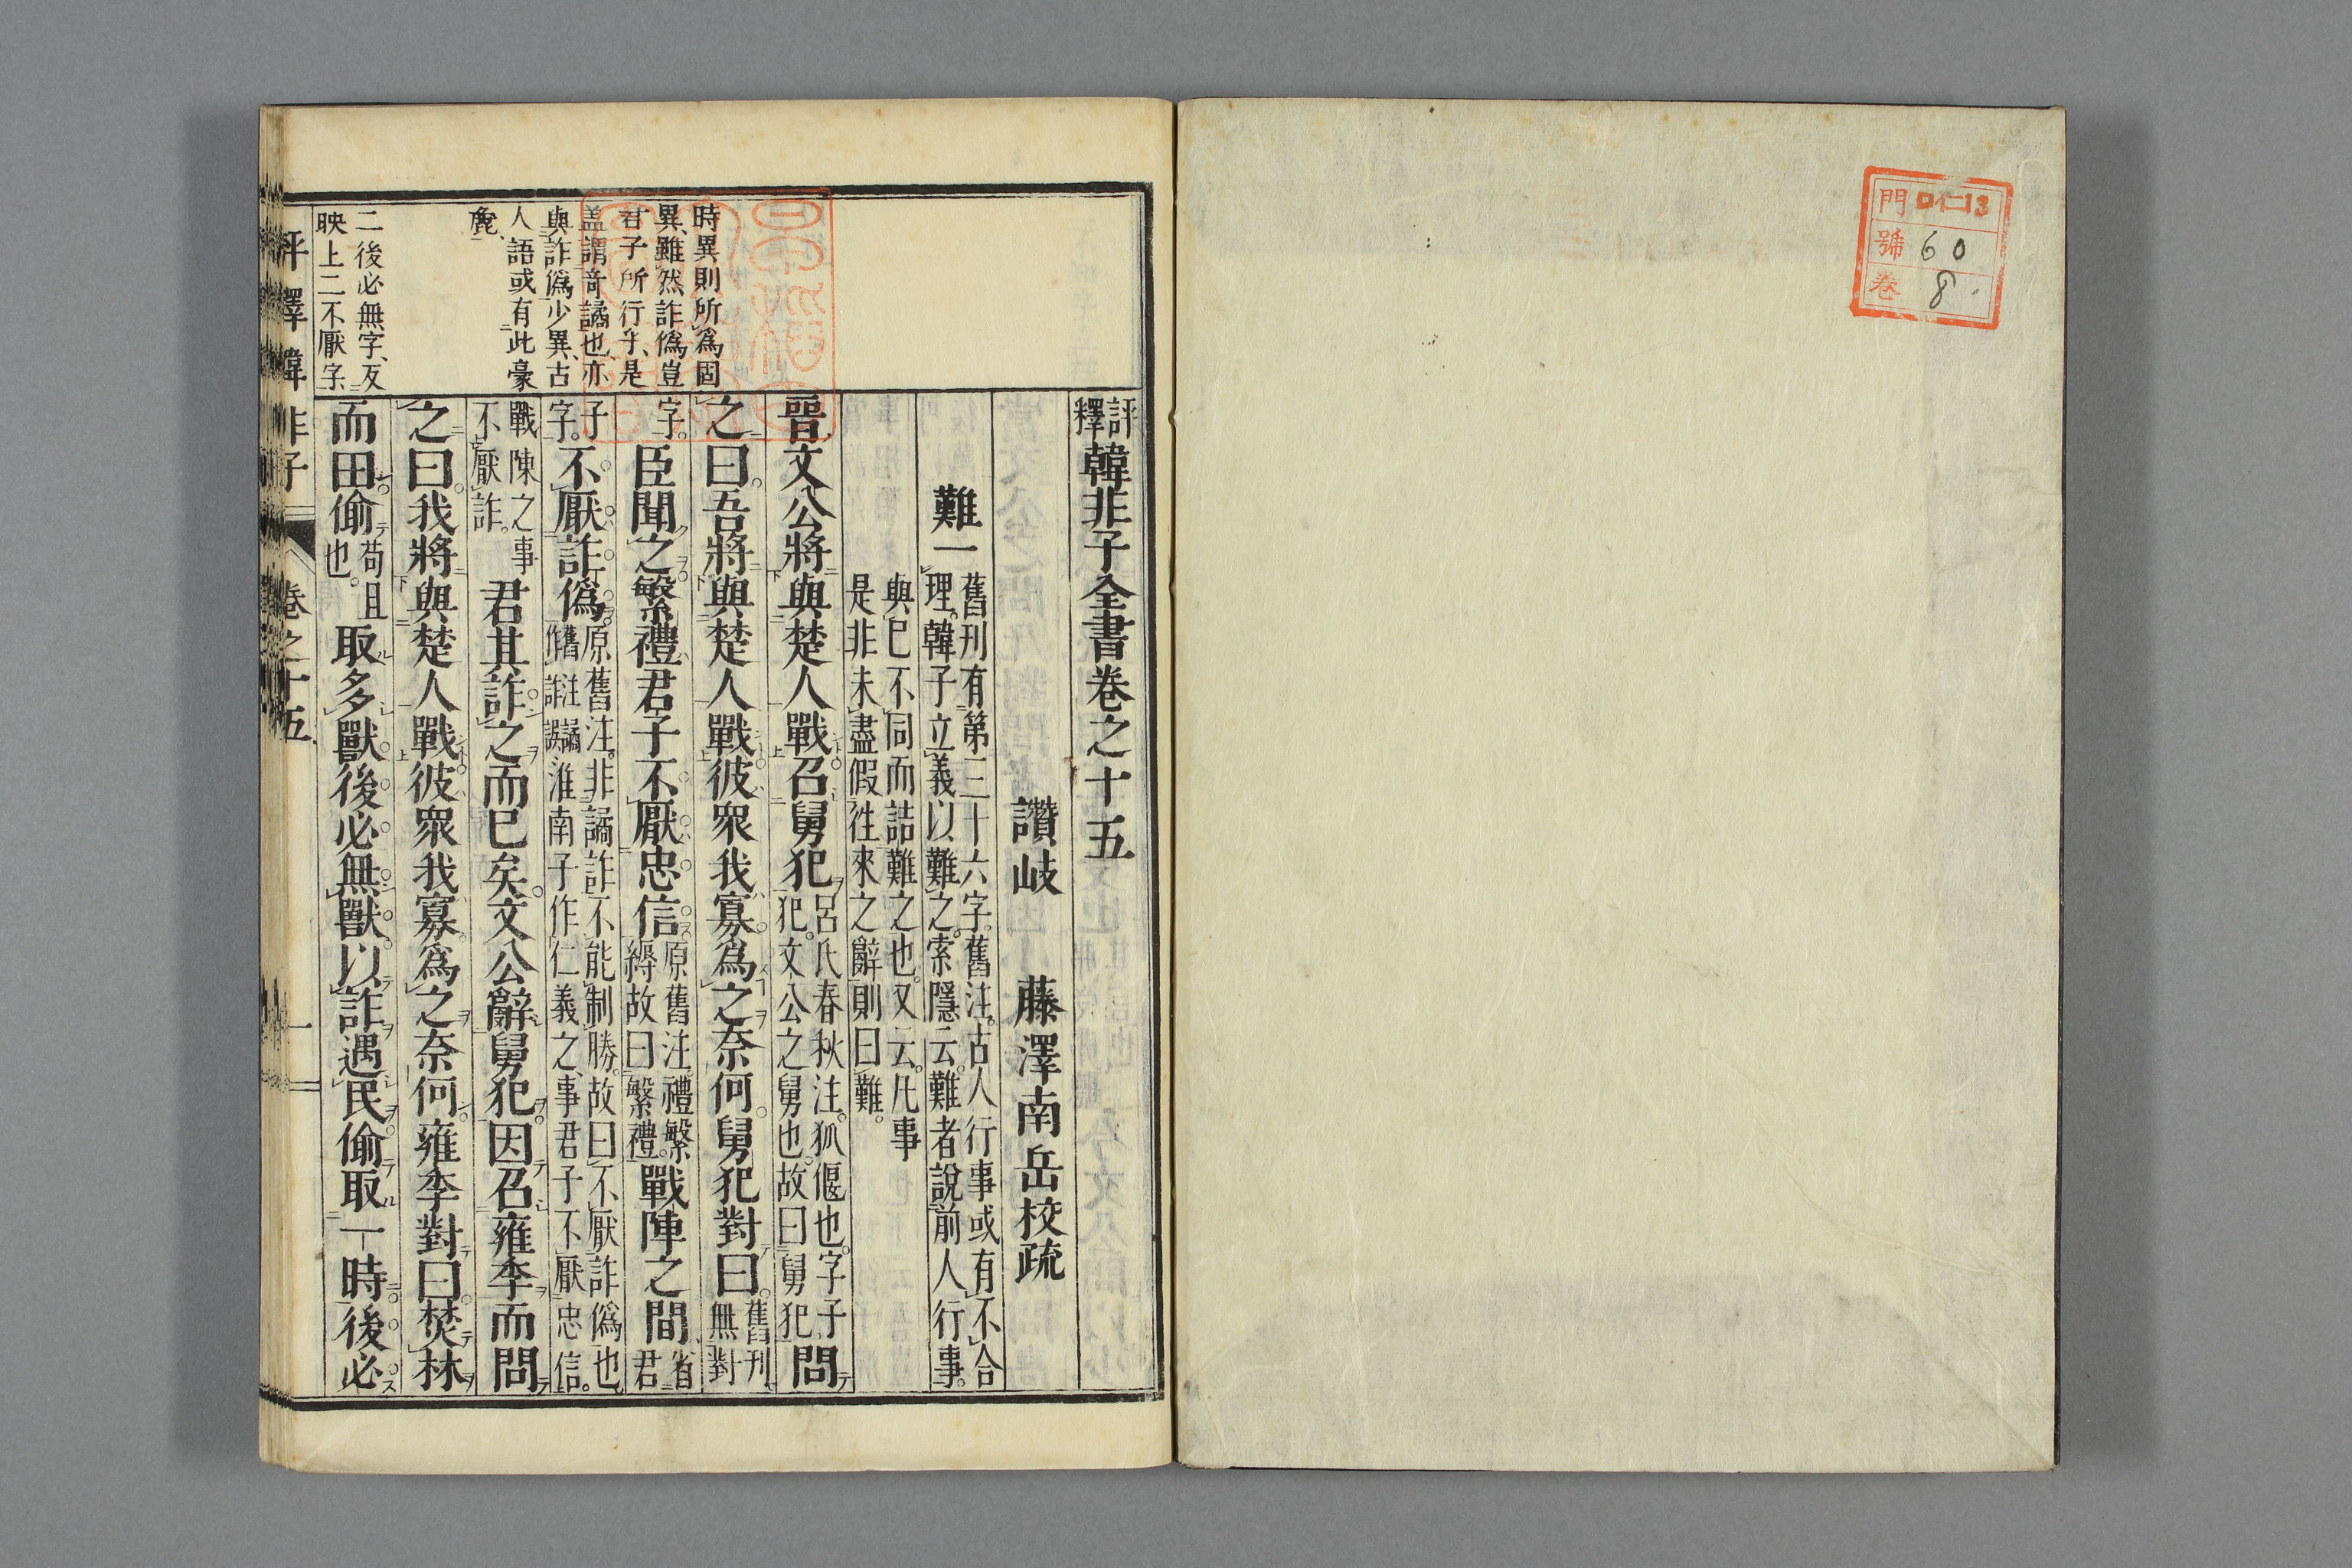 門 ロ仁13
號 60
卷 8
評釋韓非子全書卷之十五
讚岐 藤澤南岳校疏
難一 舊刊有第三十六字。舊注。古人行事或有不合
理。韓子立義以難之。索隱云。難者說前人行事。
與已不同而詰難之也。又云。凡事
是非未盡假徃來之辭則曰難。
晉文公將與楚人戰召舅犯 呂氏春秋注。狐偃也。字子
犯。文公之舅也。故曰舅犯 問
之曰。吾將與楚人戰彼衆我寡。爲之奈何。舅犯對曰。 舊刊
無對
字。臣聞之繁禮君子不厭忠信。 原舊注。禮繁
縟故曰繁禮。 戰陣之間 省
君
子
字。不厭詐僞。 原舊注。非譎詐不能制勝。故曰不厭詐僞也
舊注詐譎誤作 淮南子作仁義之事君子不厭忠信。
戰陳之事
不厭詐。 君其詐之而已矣。文公辭舅犯。因召雍季而問
之曰。我將與楚人戰。彼衆我寡。爲之奈何。雍季對曰。焚林
而田。偷 苟且
也。 取多獸。後必無獸。以詐遇民。偷取一時。後必
時異則所爲固
異、雖然詐僞豈
君子所行乎、是
盖謂奇譎也、亦
與詐僞少異、古
人語或有此豪
麄、
二後必無字、反
映上二不厭字
評釋韓非子 卷之十五 一